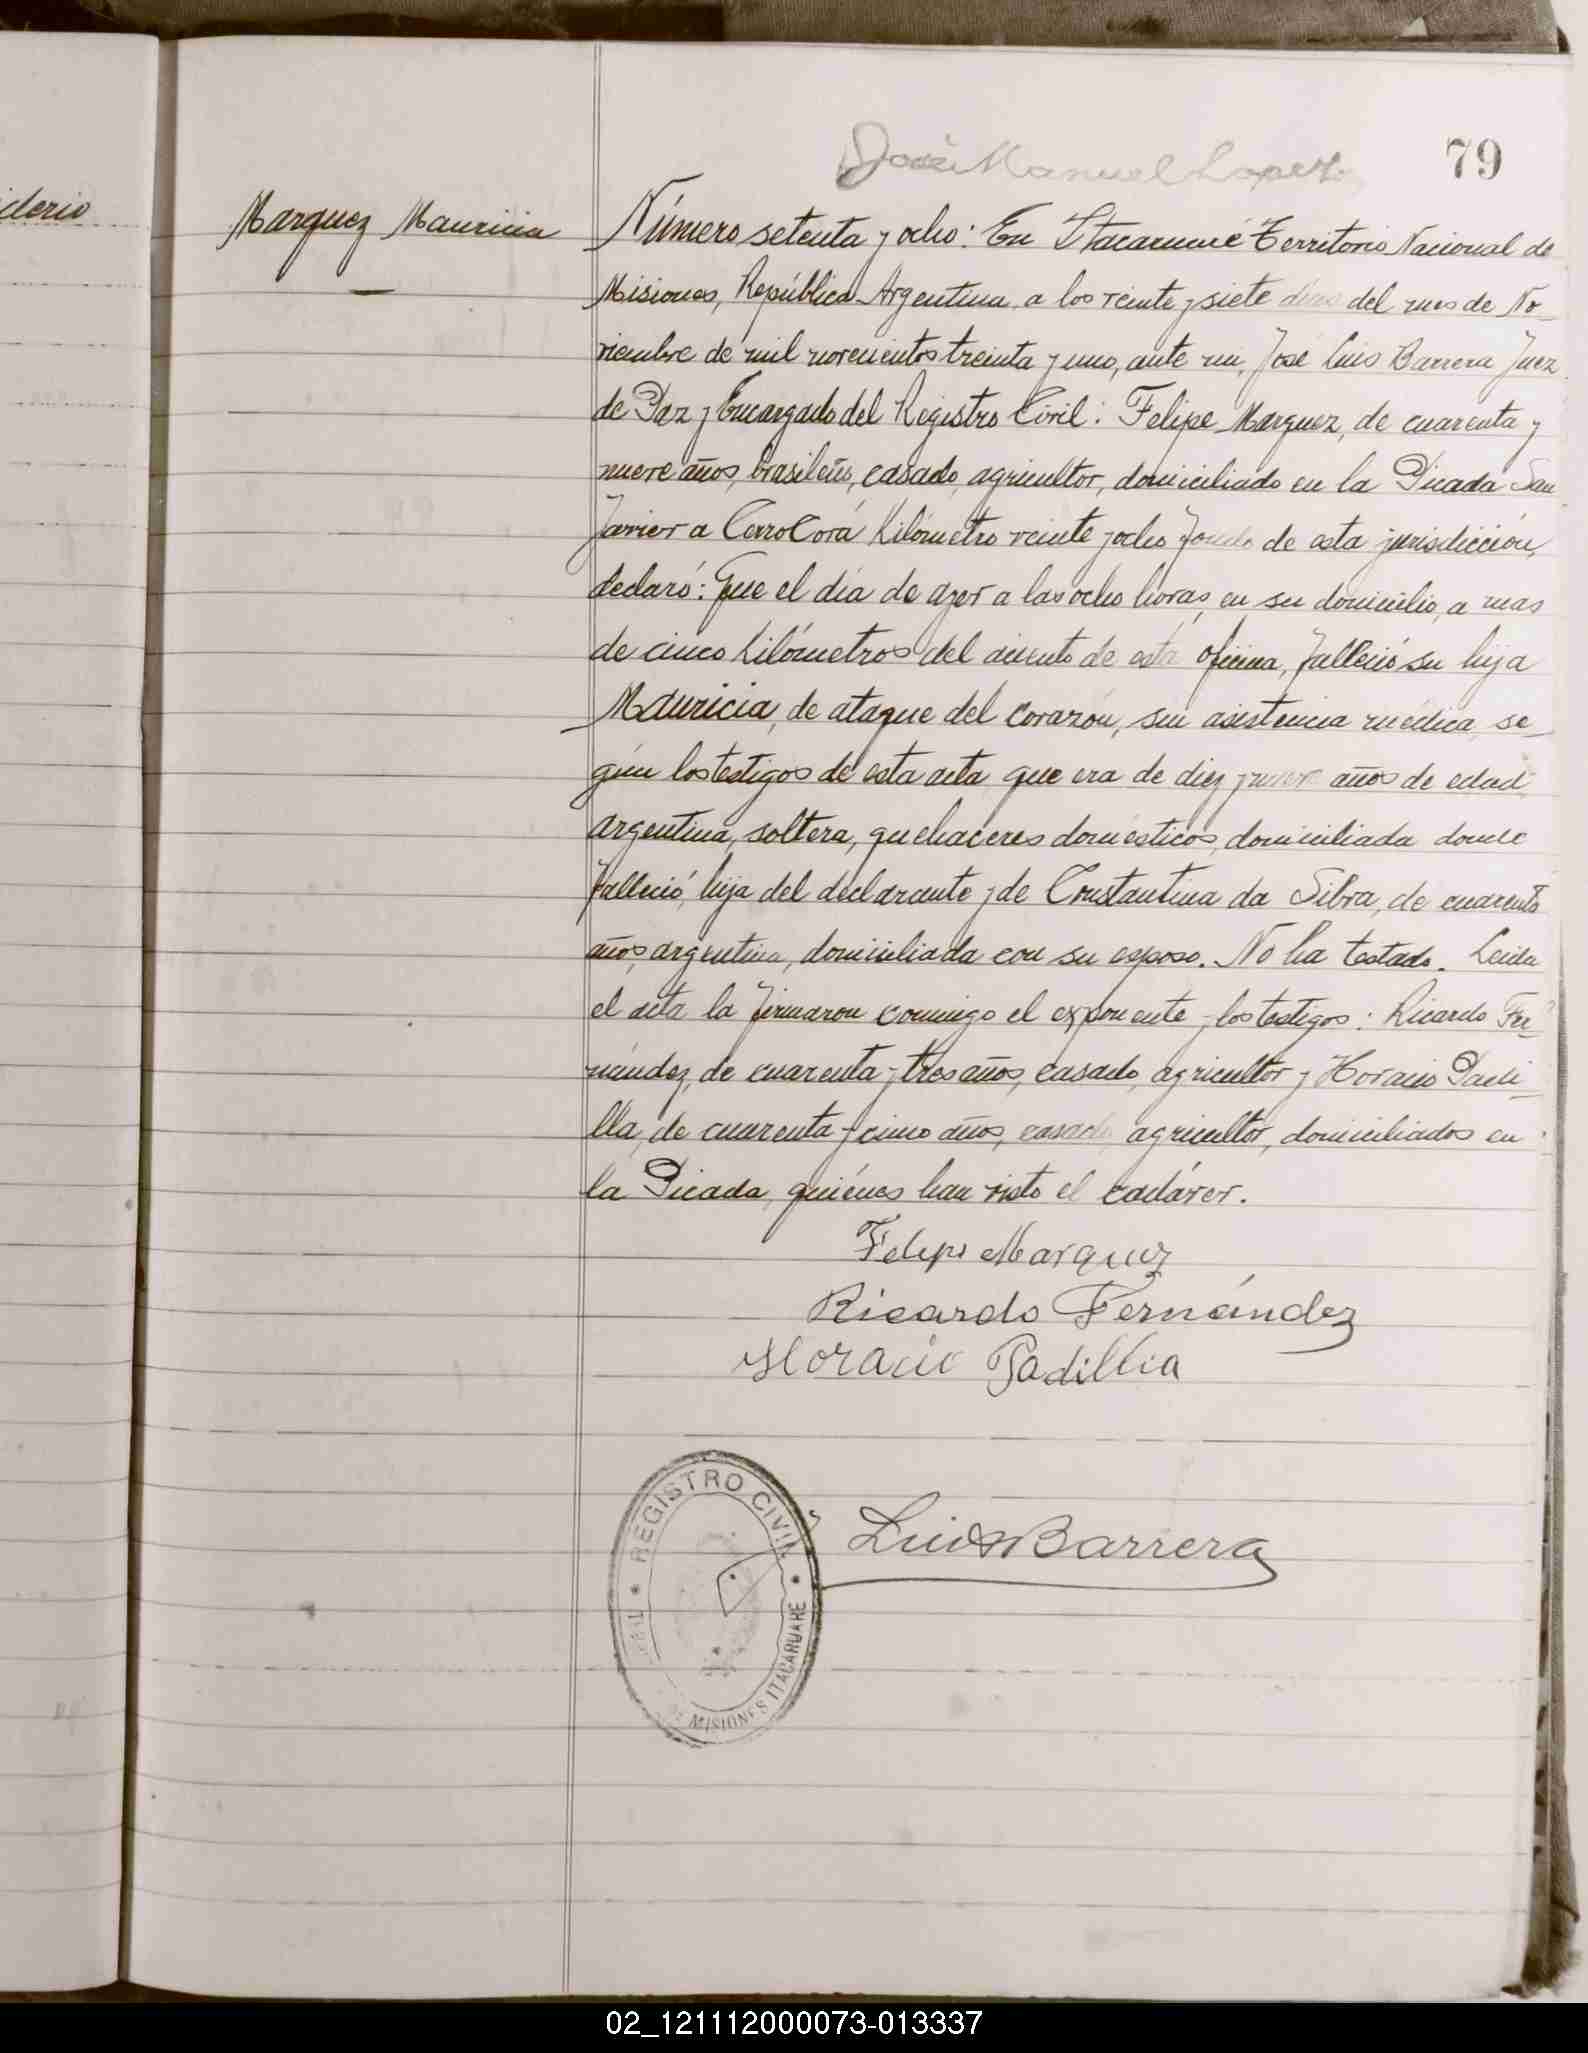 iderio
José Manuel Lopez
79
Marquez Mauricia
Número setenta y ocho: En Itacaruaré Territorio Nacional de
Misiones, República Argentina, a los veinte y siete dias del mes de No-
viembre de mil novecientos treinta y uno, ante mi, José Luis Barrera Juez
de Paz y Encargado del Registro Civil: Felipe Marquez, de cuarenta y
nueve años, brasileño, casado, agricultor, domiciliado en la Picada San
Javier a Cerro Corá Kilómetro veinte y ocho fondo de esta jurisdicción,
declaró: Que el día de ayer a las ocho horas, en su domicilio, a mas
de cinco kilómetros del asiento de esta oficina, falleció su hija
Mauricia, de ataque del corazón, sin asistencia médica, se-
gún los testigos de esta acta que era de diez y nueve años de edad
argentina, soltera, quehaceres domésticos, domiciliada donde
falleció, hija del declarante y de Constantina da Silva, de cuarenta
años, argentina, domiciliada con su esposo. No ha testado. Leida
el acta la firmaron conmigo el exponente y los testigos: Ricardo Fer-
nández, de cuarenta y tres años, casado, agricultor y Horacio Padi-
lla, de cuarenta y cinco años, casado, agricultor, domiciliados en
la Picada, quiénes han visto el cadáver.
Felipe Marquez
Ricardo Fernández
Horacio Padillia
REGISTRO CIVIL
MISIONES ITACARUARE
Luis Barrera
02_121112000073-013337